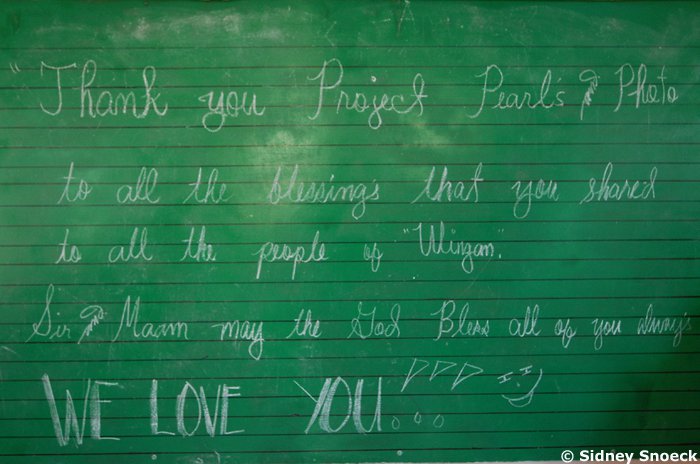 "Thank you Project Pearl's & Photo
to all the blessing's that you shared
to all the people of "Ulingan."
Sir & Maam may the God Bless all of you always
WE LOVE YOU...
© Sidney Snoeck